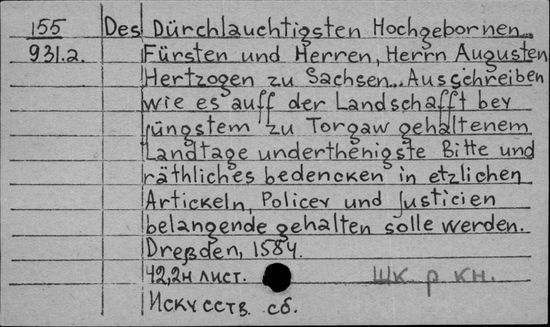 155 Des Dürchlauchtigsten Hochgebornen
931.2. Fürsten und Herren, Herrn Augusten
Hertzogen zu Sachsen... Ausschreiben
wie es auff der Landschafft bey
jüngstem zu Torgaw gehaltenem
Landtage underthenigste Bitte und
räthliches bedencken in etzlichen
Artickeln, Policey und Justicien
belangende gehalten solle werden.
Dreßden, 1584.
42,2н лист. Шк. р. кн.
Искусств. сб.